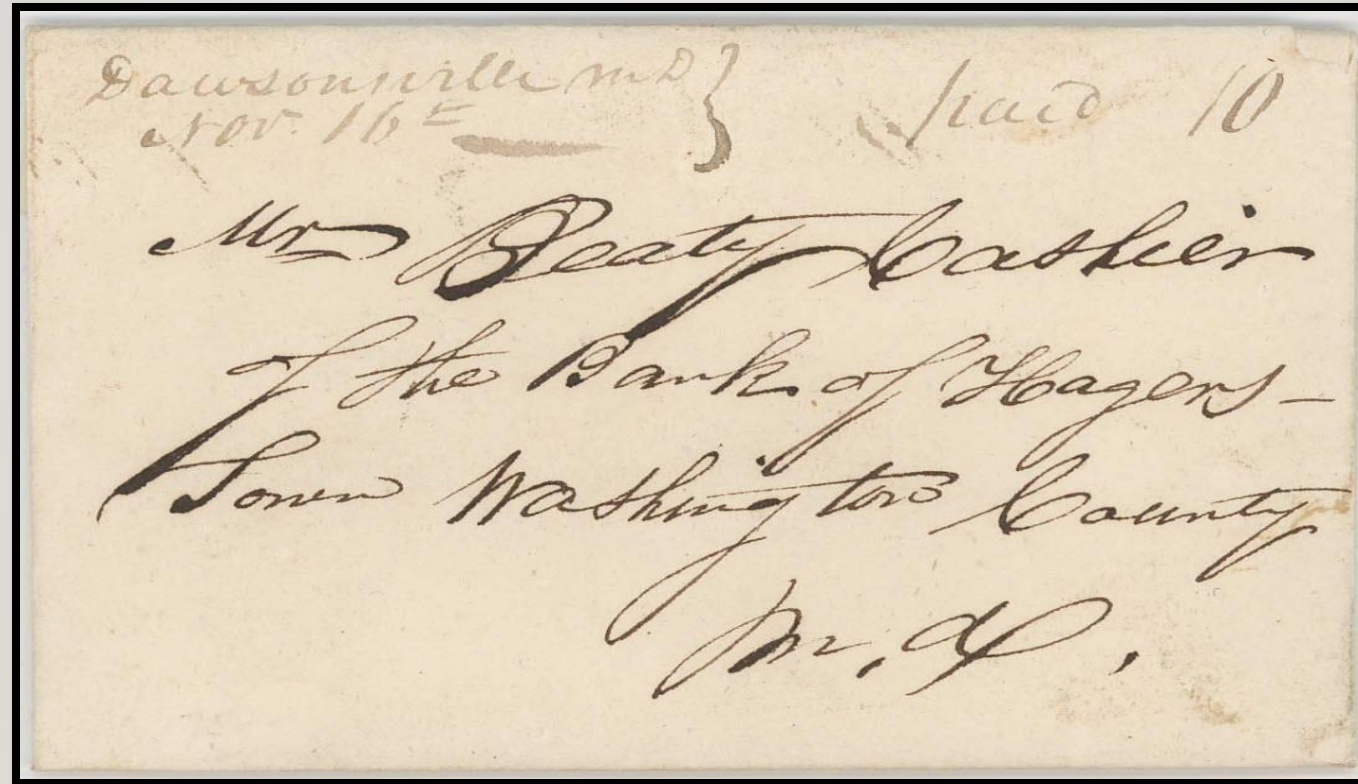 Dawsonville MD } paid 10
Nov. 16th
Mr Beaty Cashier
of the Bank of Hagers-
Town Washington County
M.D.